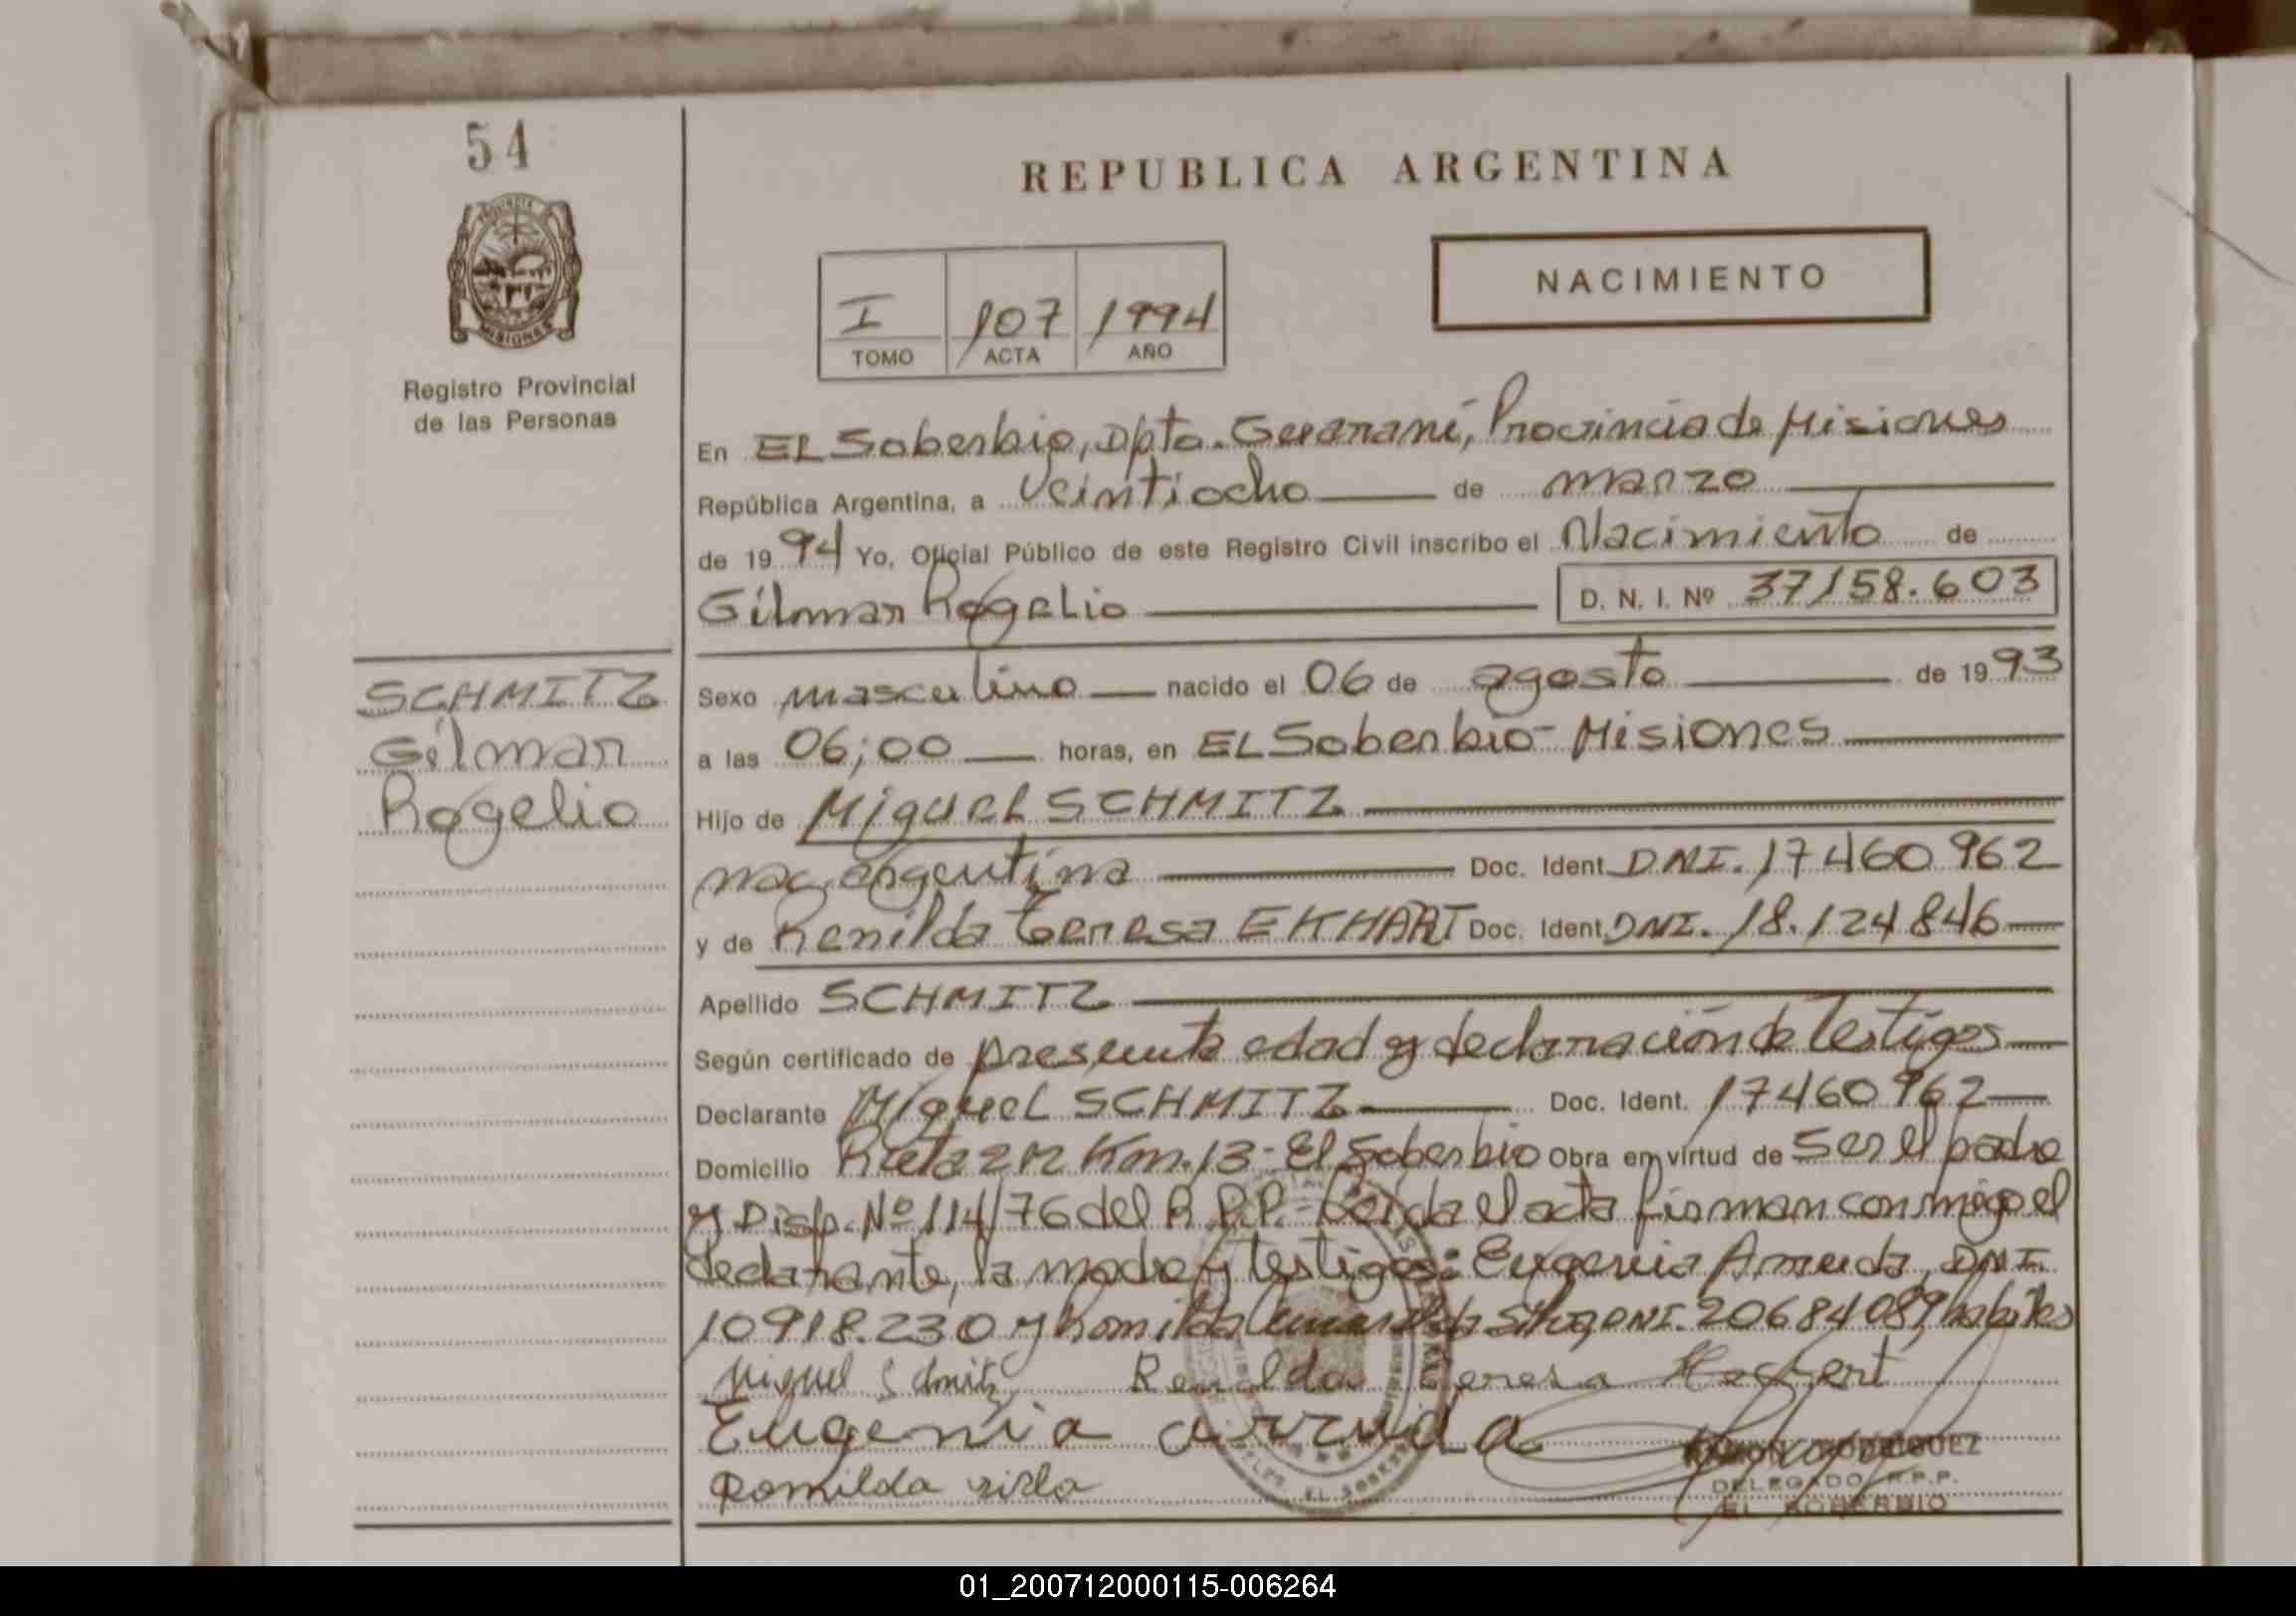 54
PROVINCIA DE
MISIONES
Registro Provincial
de las Personas
REPUBLICA ARGENTINA
NACIMIENTO
I 107 1994
TOMO ACTA AÑO
En EL Soberbio, Dpto. Guaraní, Provincia de Misiones
República Argentina, a veintiocho de marzo
de 1994 Yo, Oficial Público de este Registro Civil inscribo el Nacimiento de
Gilmar Rogelio D. N. I. Nº 37158.603
SCHMITZ
Gilmar
Rogelio
Sexo masculino nacido el 06 de agosto de 1993
a las 06;00 horas, en EL Soberbio - Misiones
Hijo de Miguel SCHMITZ
nac. argentina Doc. Ident. DNI. 17460962
y de Renilda Teresa EKHART Doc. Ident. DNI. 18.124846
Apellido SCHMITZ
Según certificado de presunta edad y declaración de Testigos
Declarante Miguel SCHMITZ Doc. Ident. 17460962
Domicilio Ruta 2 Km. 13 - El Soberbio Obra en virtud de Ser el padre
y Disp. Nº 114/76 del R.P.P. - Leída el acta firman conmigo el
declarante, la madre y testigos: Eugenia Arruda, DNI.
10918.230 y Romilda Silva DNI. 20684089, habiles
Miguel Schmitz Renilda Teresa
Eugenia arruda
Romilda silva
RAMON RODRIGUEZ
DELEGADO R.P.P.
EL SOBERBIO
01_200712000115-006264